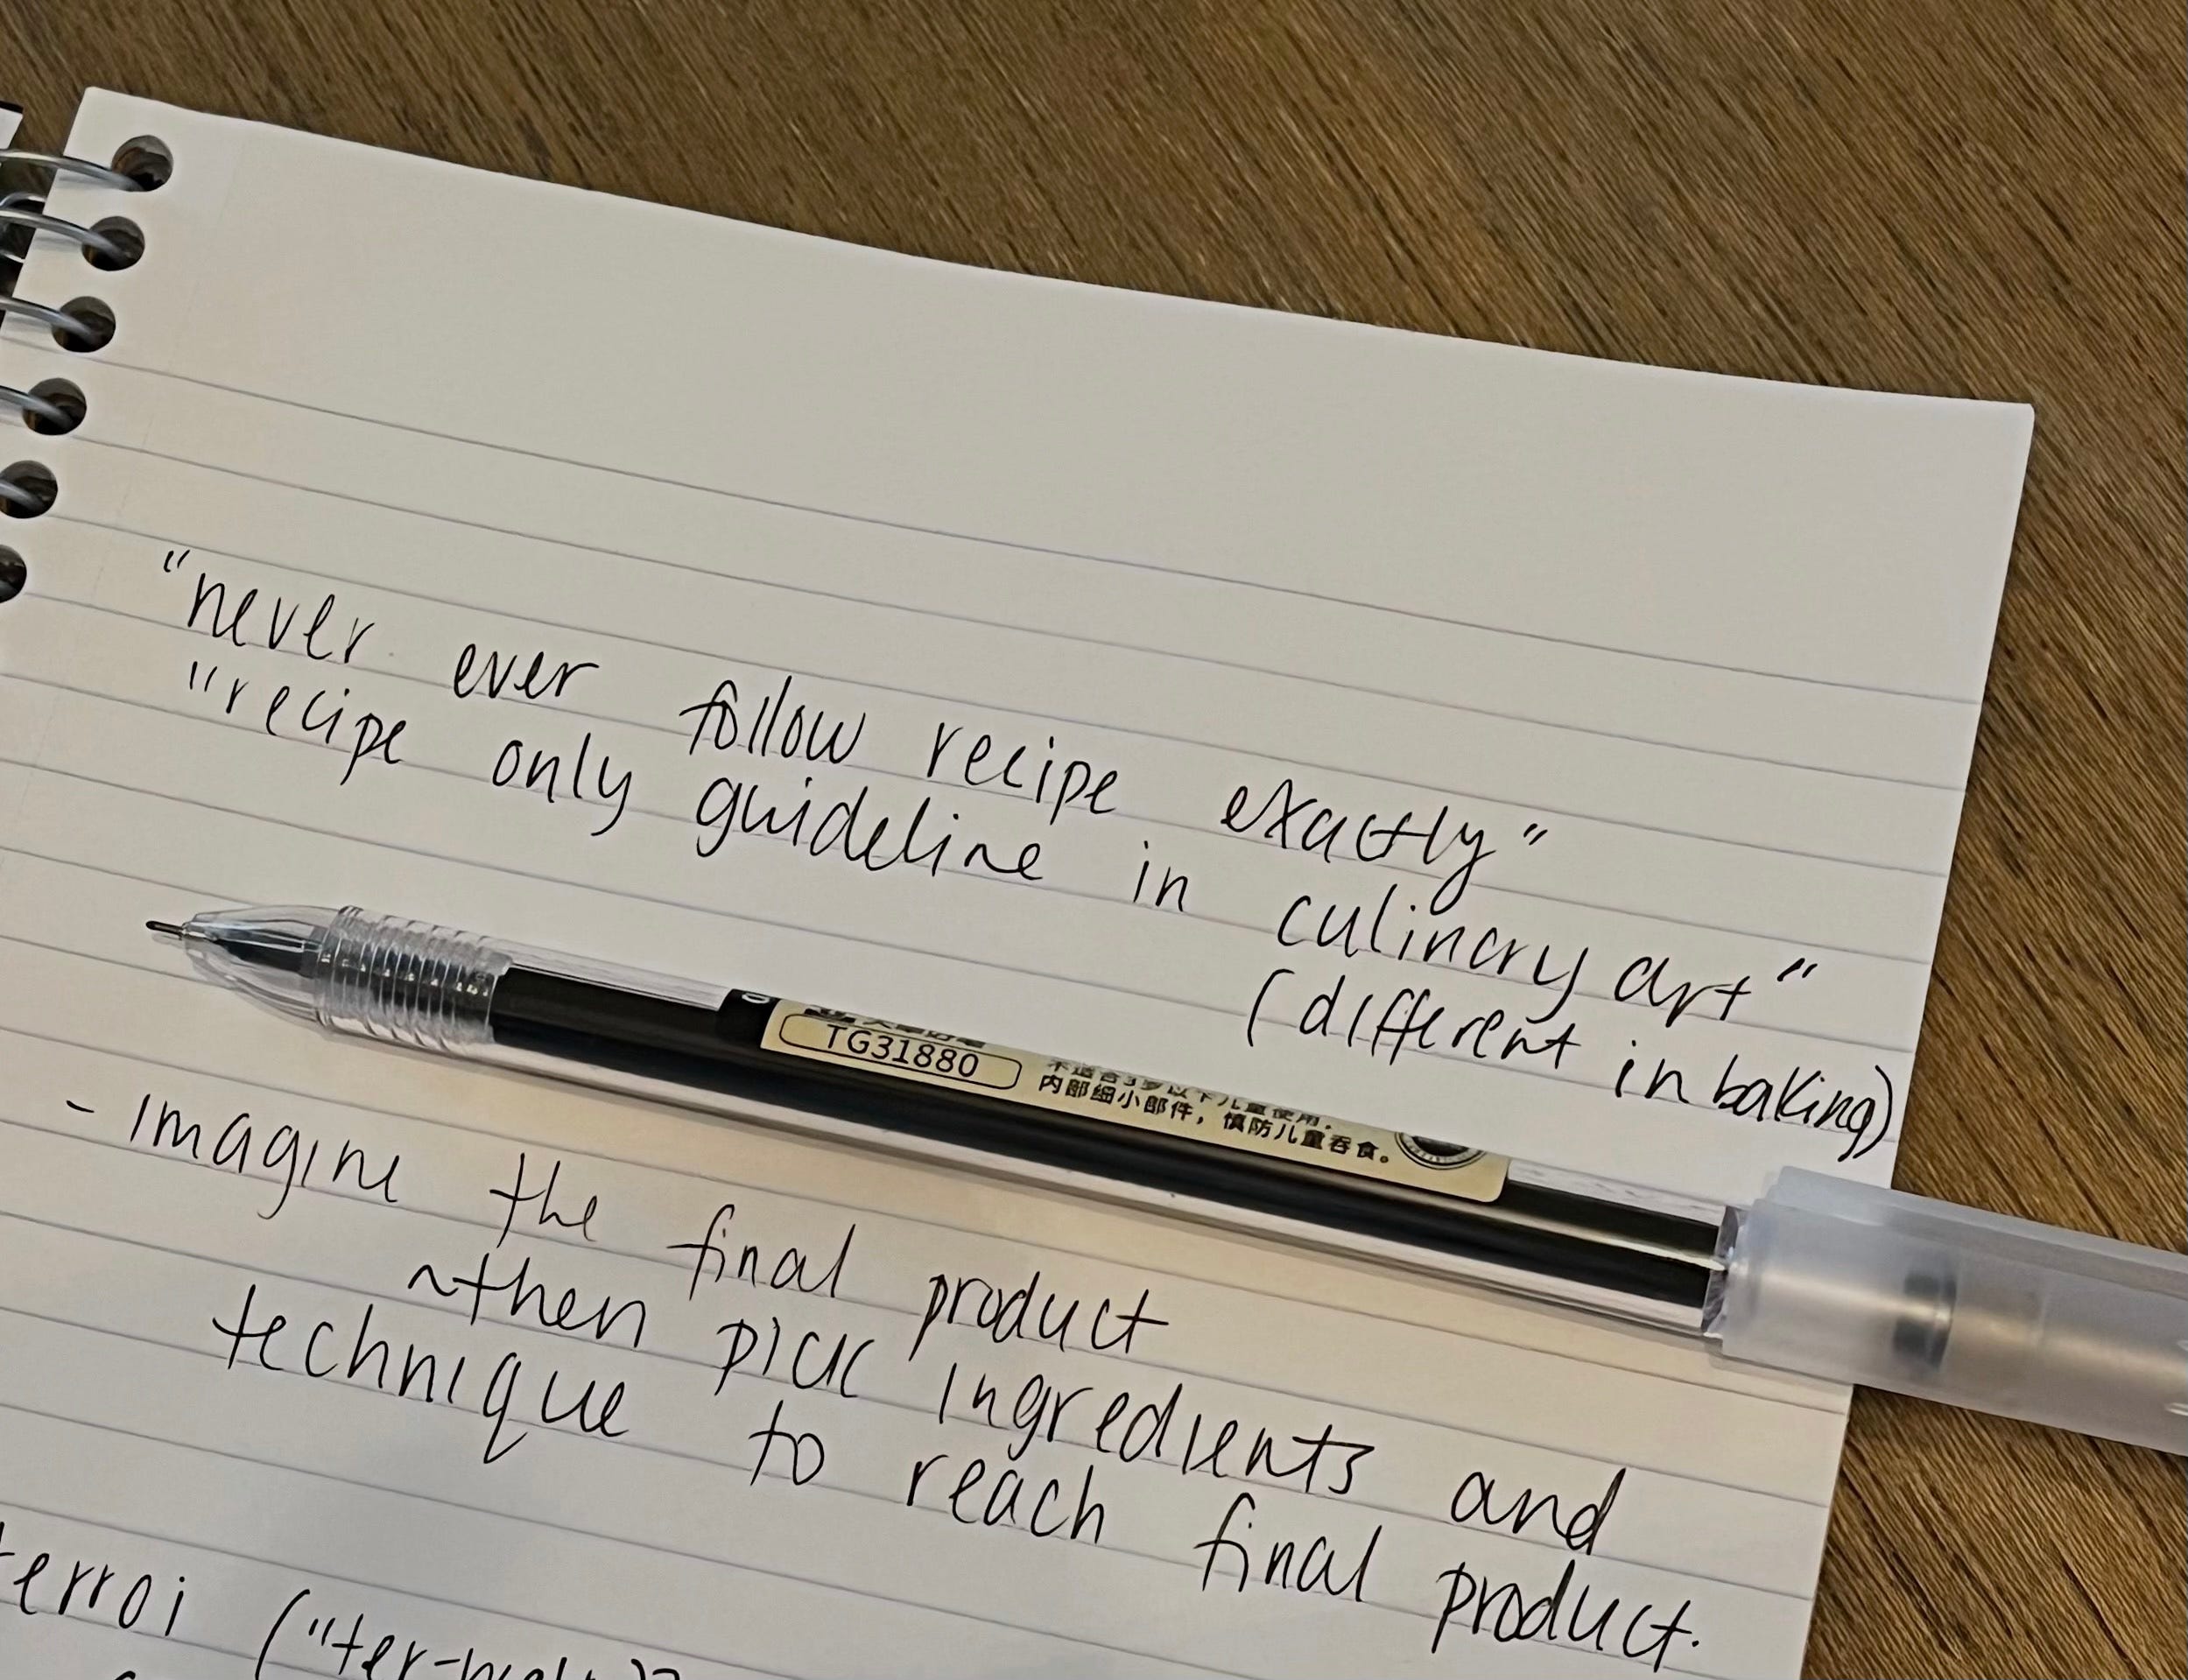 "never ever follow recipe exactly"
"recipe only guideline in culinary art"
(different in baking)
TG31880
不适合3岁以下儿童使用.
内部细小部件, 慎防儿童吞食。
- imagine the final product
~then pick ingredients and
technique to reach final product.
terroi ("ter-